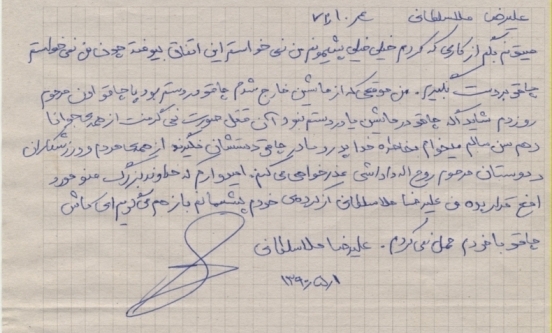 علیرضا ملاسلطانی
میتونم بگم از کاری که کردم خیلی خیلی پشیمونم من نمی خواستم این اتفاق بیوفتد چون من نمی خواستم
چاقو بدست بگیرم. من موقعی که از ماشین خارج شدم چاقو در دستم بود با چاقو اون مرحوم
رو زدم شاید اگه چاقو در ماشین یا در دستم نبود آن قتل صورت نمی گرفت از همه ی جوانا
هم سن سالم میخوام بخاطره خدا پدر و مادر چاقو دستشان نگیرند از همه ی مردم و ورزشکاران
و دوستان مرحوم روح اله داداشی عذرخواهی می کنم. امیدوارم که خداوند بزرگ منو مورد
قرار بده من علیرضا ملاسلطانی از کرده ی خودم پشیمانم باز هم می گویم ای کاش
چاقو با خودم حمل نمی کردم. علیرضا ملاسلطانی